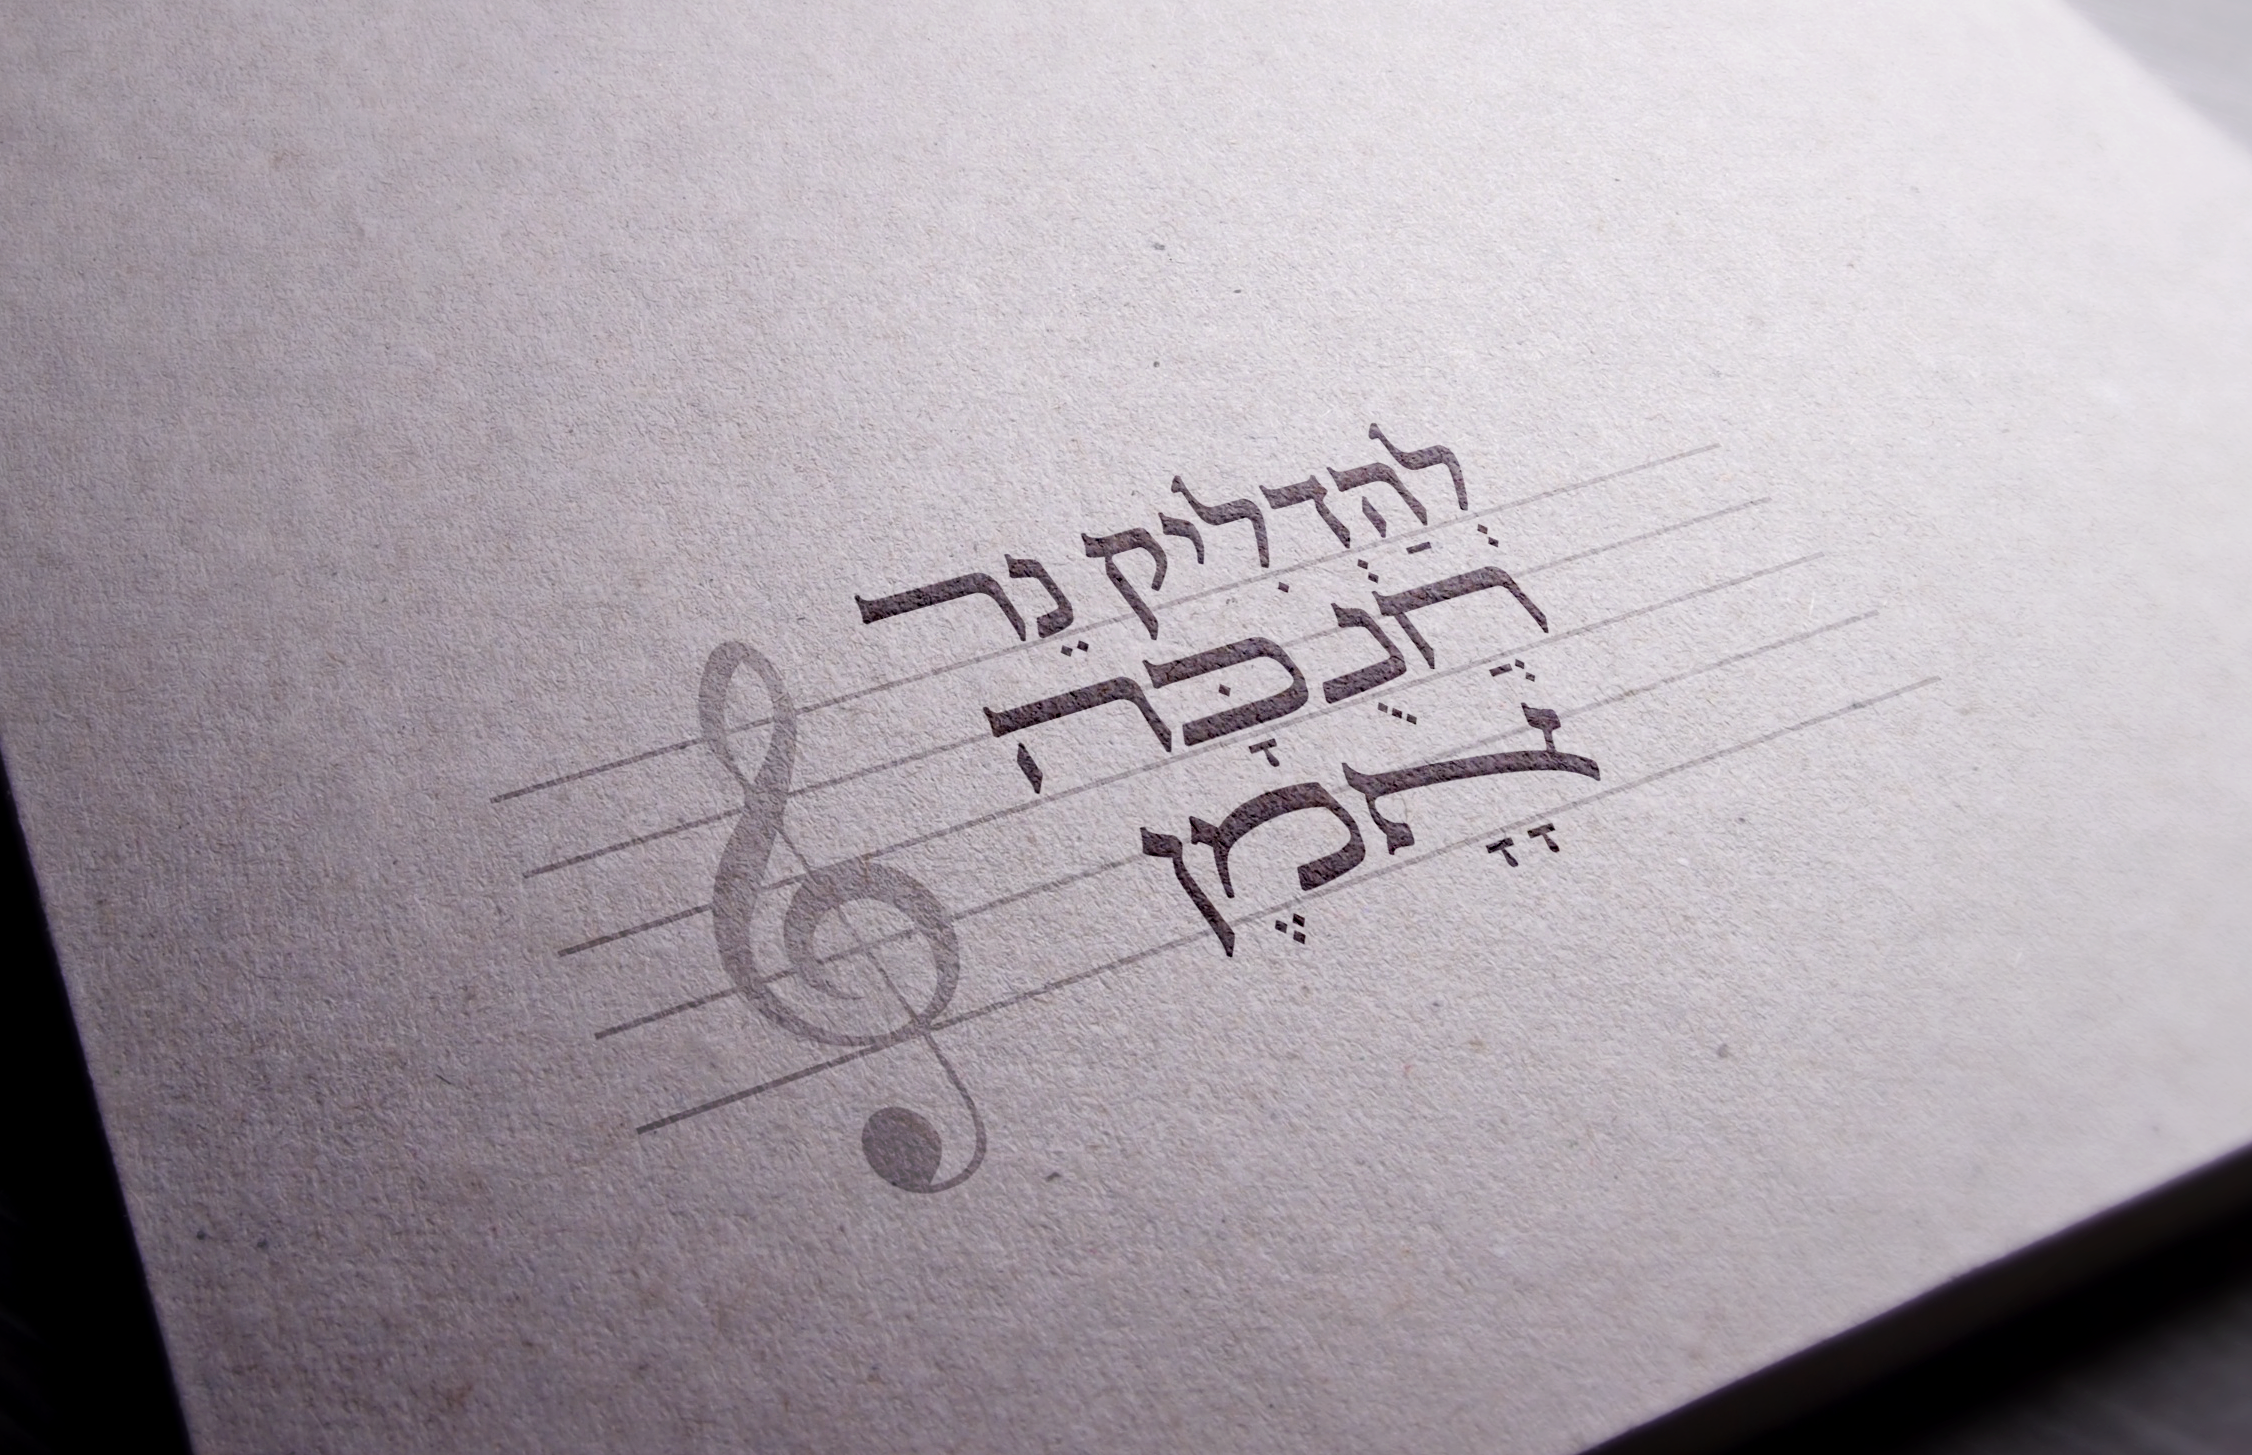 לְהַדְלִיק נֵר
חֲנֻכָּה
אָָמֶן